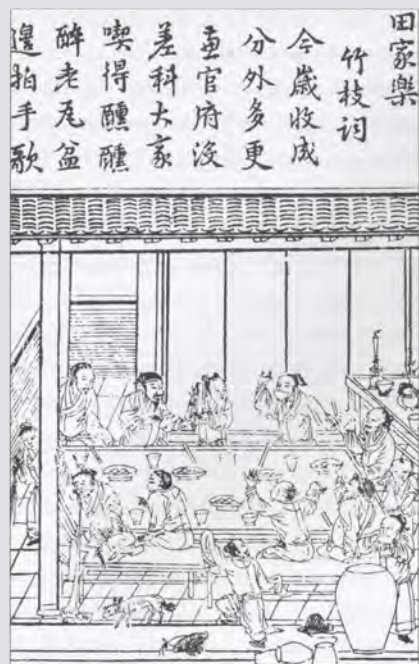 田家樂
竹枝詞
今歲收成
分外多更
兼官府没
差科大家
喫得醺醺
醉老瓦盆
邊拍手歌